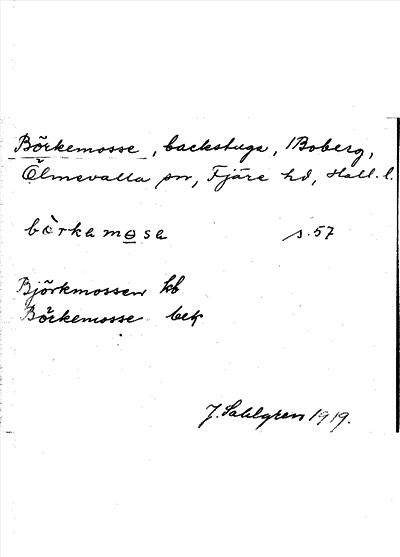 Börkemosse, backstuga, Boberg,
Ölmevalla sn, Fjäre hd, Hall. l.
bòrkamosa s. 57
Björkmossen kb
Börkemosse bek
J. Sahlgren 1919.